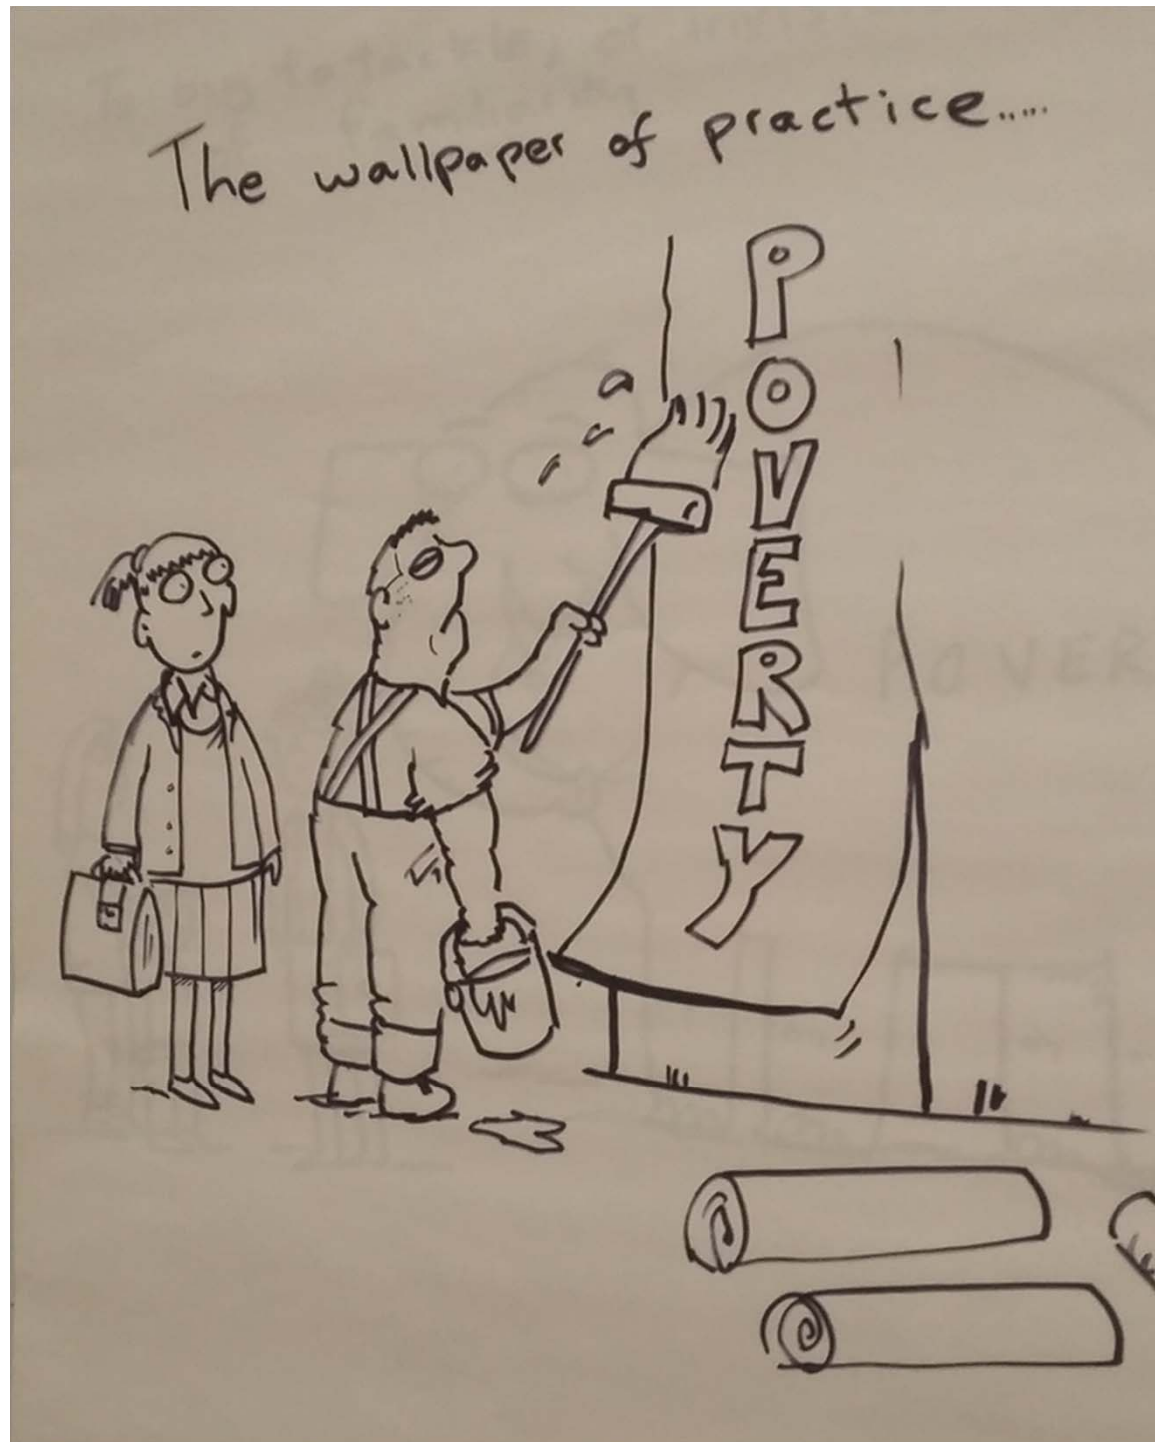 The wallpaper of practice.....
POVERTY
POVER